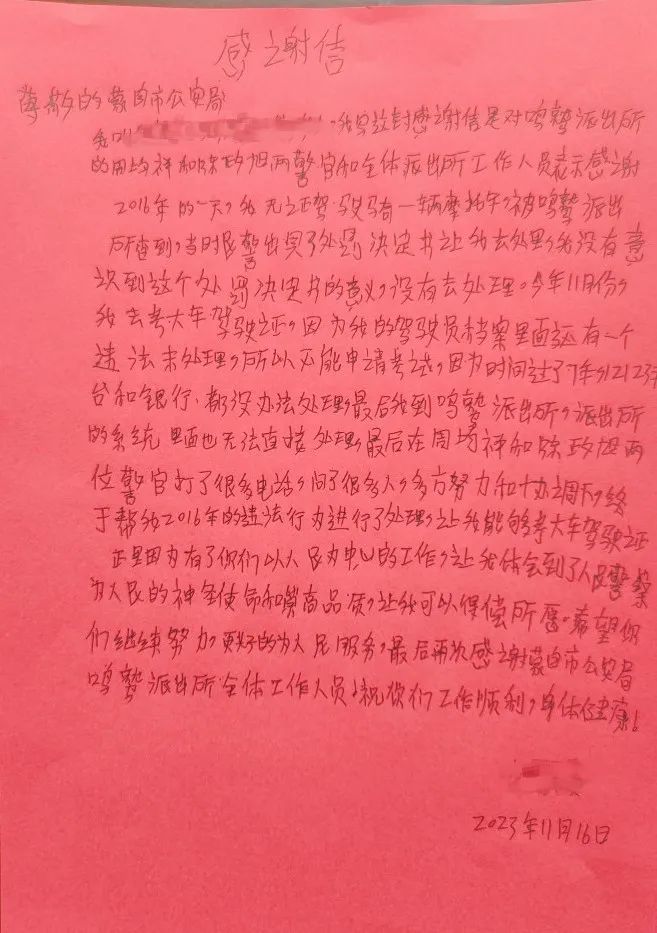 感谢信
尊敬的蒙自市公安局
我叫 ,我写这封感谢信是对鸣鹫派出所
的周均祥和陈政旭两警官和全体派出所工作人员表示感谢
2016年的一天,我无证驾驶骑一辆摩托车,被鸣鹫派出
所查到,当时民警出具了处罚决定书让我去处理,我没有意
识到这个处罚决定书的意义,没有去处理。今年11月份,
我去考大车驾驶证,因为我的驾驶员档案里面还有一个
违法未处理,所以不能申请考试,因为时间过了7年,12123平
台和银行,都没办法处理,最后我到鸣鹫派出所,派出所
的系统里面也无法直接处理,最后在周均祥和陈政旭两
位警官打了很多电话,问了很多人,多方努力和协调下,终
于帮我2016年的违法行为进行了处理,让我能够考大车驾驶证
正是因为有了你们以人民为中心的工作,让我体会到了人民警察
为人民的神圣使命和崇高品质,让我可以得偿所愿。希望你
们继续努力,更好的为人民服务,最后再次感谢蒙自市公安局
鸣鹫派出所全体工作人员,祝你们工作顺利,身体健康!
2023年11月16日